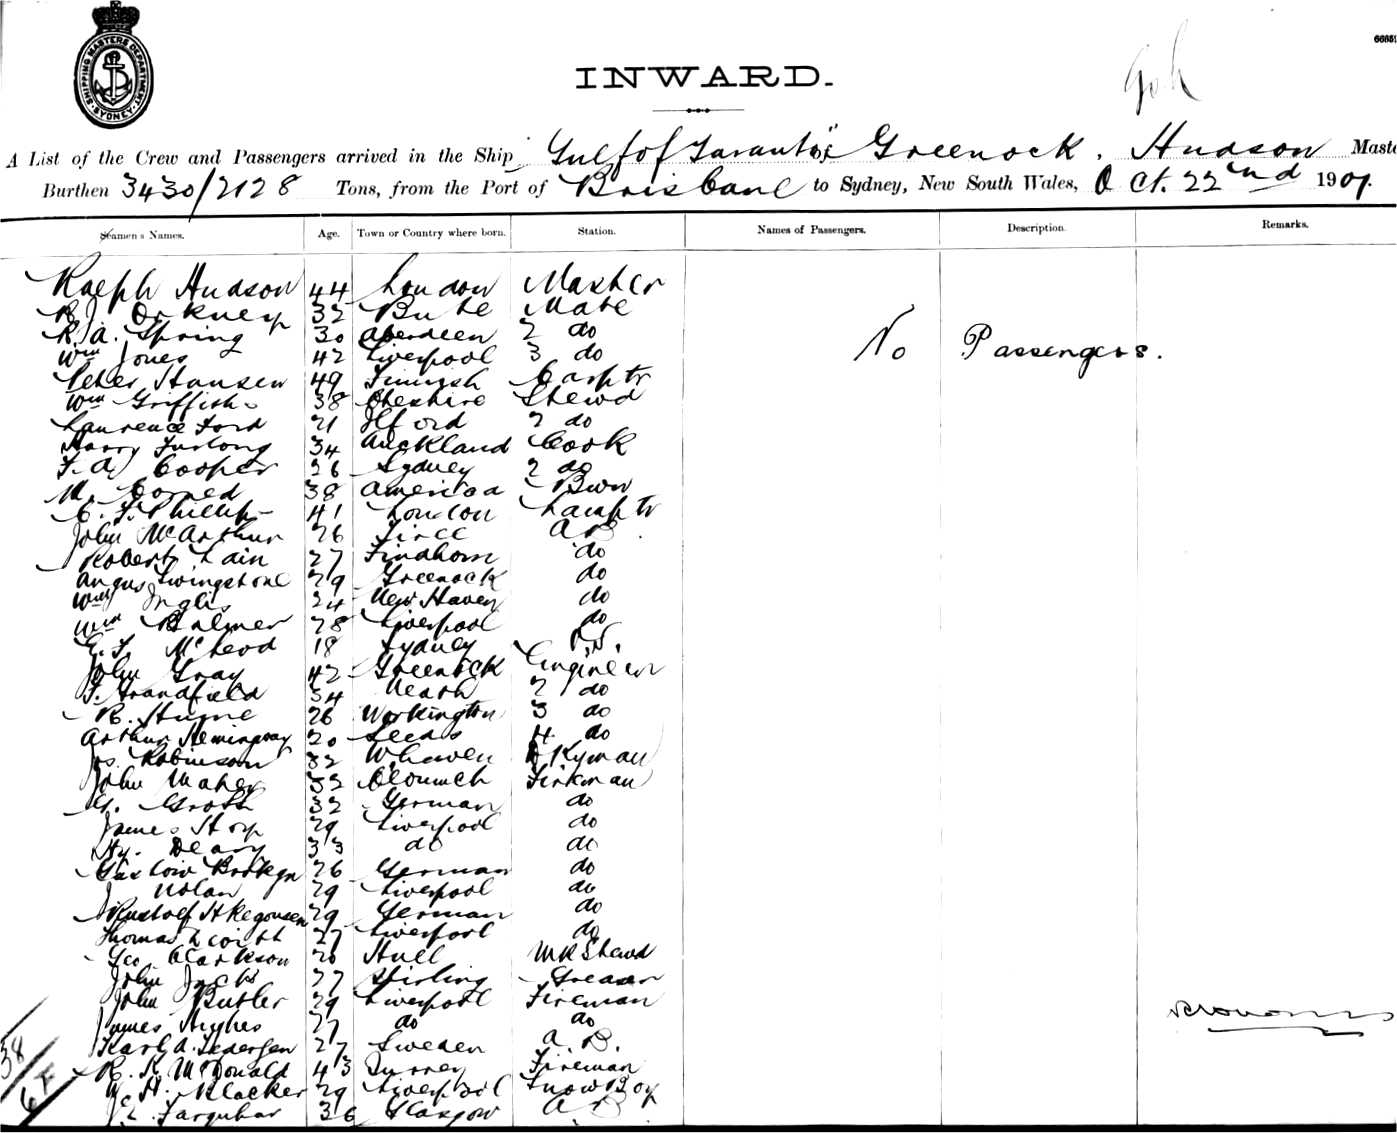 SHIPPING MASTERS DEPARTMENT SYDNEY
INWARD.
A List of the Crew and Passengers arrived in the Ship Gulf of Taranto of Greenock, Hudson Maste
Burthen 3430/2128 Tons, from the Port of Brisbane to Sydney, New South Wales, Oct. 22nd 1901.
Seamens Names. Age. Town or Country where born. Station. Names of Passengers. Description. Remarks.
Ralph Hudson 44 London Master
R. J. Orkney 32 Bute Mate
R. A. Spring 30 Aberdeen 2 do
Wm Jones 42 Liverpool 3 do No Passengers.
Peter Hansen 49 Finnish Carptr
Wm Griffiths 38 Cheshire Stewd
Laurence Ford 21 Ilford 2 do
Harry Furlong 34 Auckland Cook
F. A. Cooper 26 Sydney 2 do
M. Corned 38 America Bswn
C. F. Phillips 41 London Lamptr
John McArthur 26 Tiree AB
Robert Lain 27 Findhorn do
Angus Livingstone 29 Greenock do
Wm Inglis 24 New Haven do
Wm Balmer 28 Liverpool do
McLeod 18 Sydney
John Gray 42 Greenock Engineer
F. Grandfield 34 Neath 2 do
R. Hume 26 Workington 3 do
Arthur Hemingway 20 Leeds 4 do
Jos. Robinson 32 Whaven Dkyman
John Maher 32 Fireman
Groth 32 German do
James 29 Liverpool do
Hy. Deary 33 do do
26 German do
J. Nolan 29 Liverpool do
29 German do
Thomas 27 Liverpool do
Geo Clarkson 20 Hull MR Stewd
John Jack 27 Stirling Greaser
John Butler 29 Liverpool Fireman
James Hughes 27 do do
Karl A. Pedersen 27 Sweden A.B.
R. R. McDonald 43 Surrey Fireman
H. Blacker 29 Liverpool Boy
Farquhar 36 Glasgow AB
38